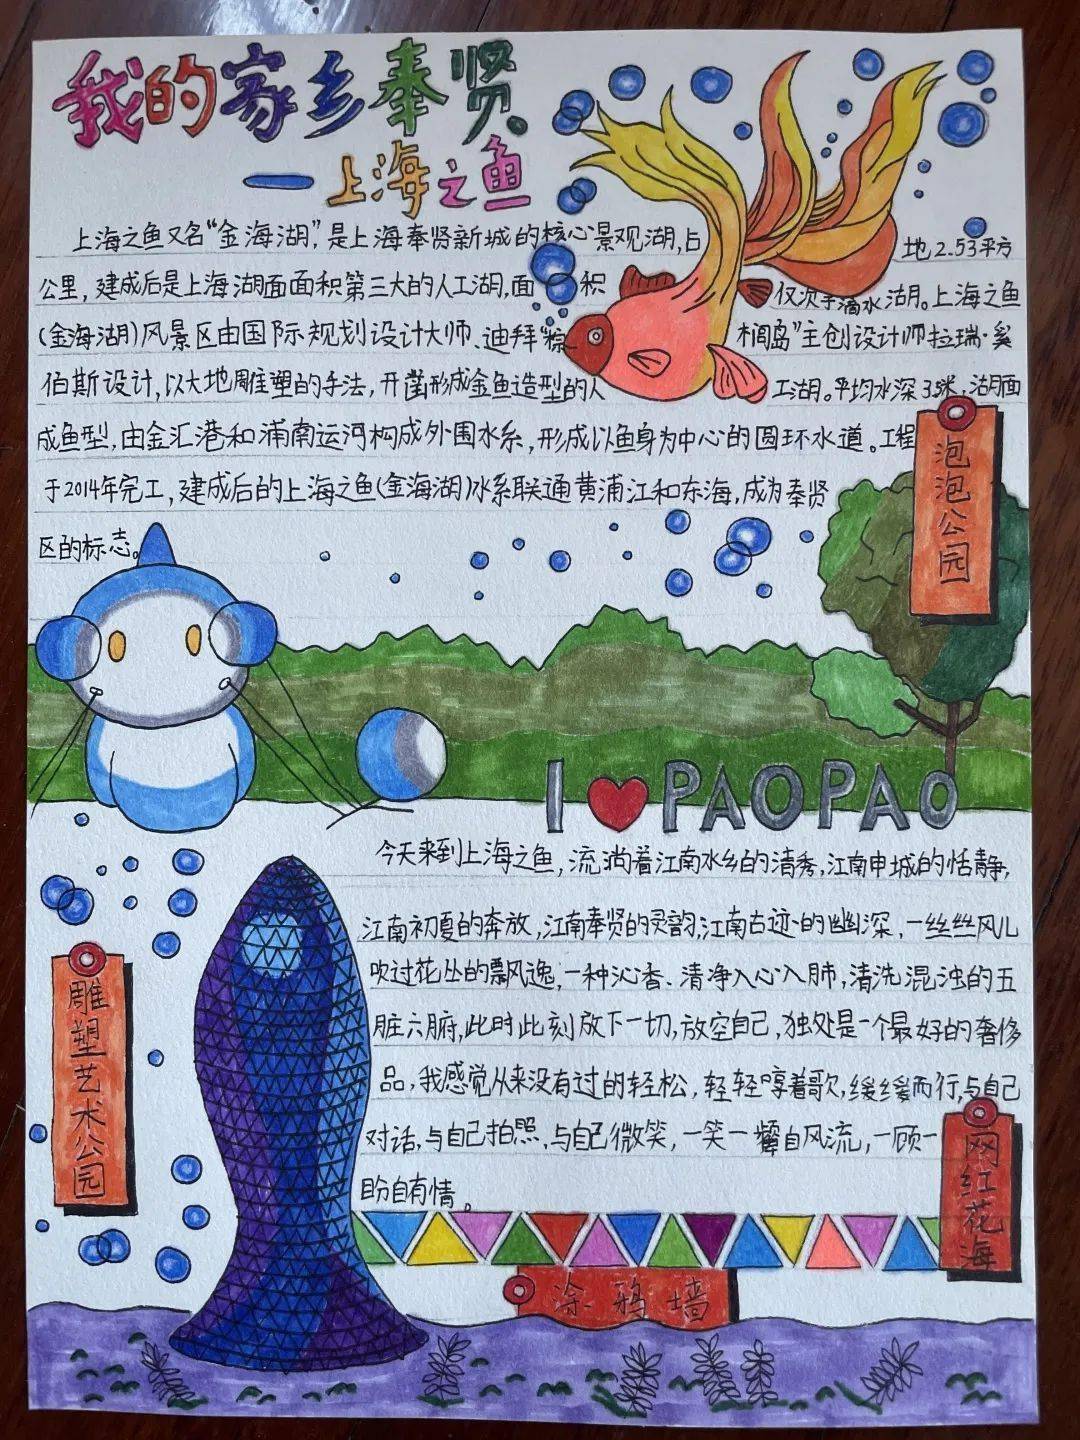 我的家乡奉贤
—上海之鱼
上海之鱼又名“金海湖”,是上海奉贤新城的核心景观湖,占地2.53平方
公里,建成后是上海湖面面积第三大的人工湖,面积仅次于滴水湖。上海之鱼
(金海湖)风景区由国际规划设计大师、迪拜“棕榈岛”主创设计师拉瑞·奚
伯斯设计,以大地雕塑的手法,开凿形成金鱼造型的人工湖。平均水深3.5米,湖面
成鱼型,由金汇港和浦南运河构成外围水系,形成以鱼身为中心的圆环水道。工程
于2014年完工,建成后的上海之鱼(金海湖)水系联通黄浦江和东海,成为奉贤
区的标志。
泡泡公园
I ♥ PAOPAO
今天来到上海之鱼,流淌着江南水乡的清秀,江南申城的恬静,
江南初夏的奔放,江南奉贤的灵韵,江南古迹的幽深,一丝丝风儿
吹过花丛的飘风逸,一种沁香、清净入心入肺,清洗混浊的五
脏六腑,此时此刻放下一切,放空自己,独处是一个最好的奢侈
品,我感觉从来没有过的轻松,轻轻哼着歌,缓缓而行,与自己
对话,与自己拍照,与自己微笑,一笑一颦自风流,一顾一
盼自有情。
雕塑艺术公园
网红花海
涂鸦墙